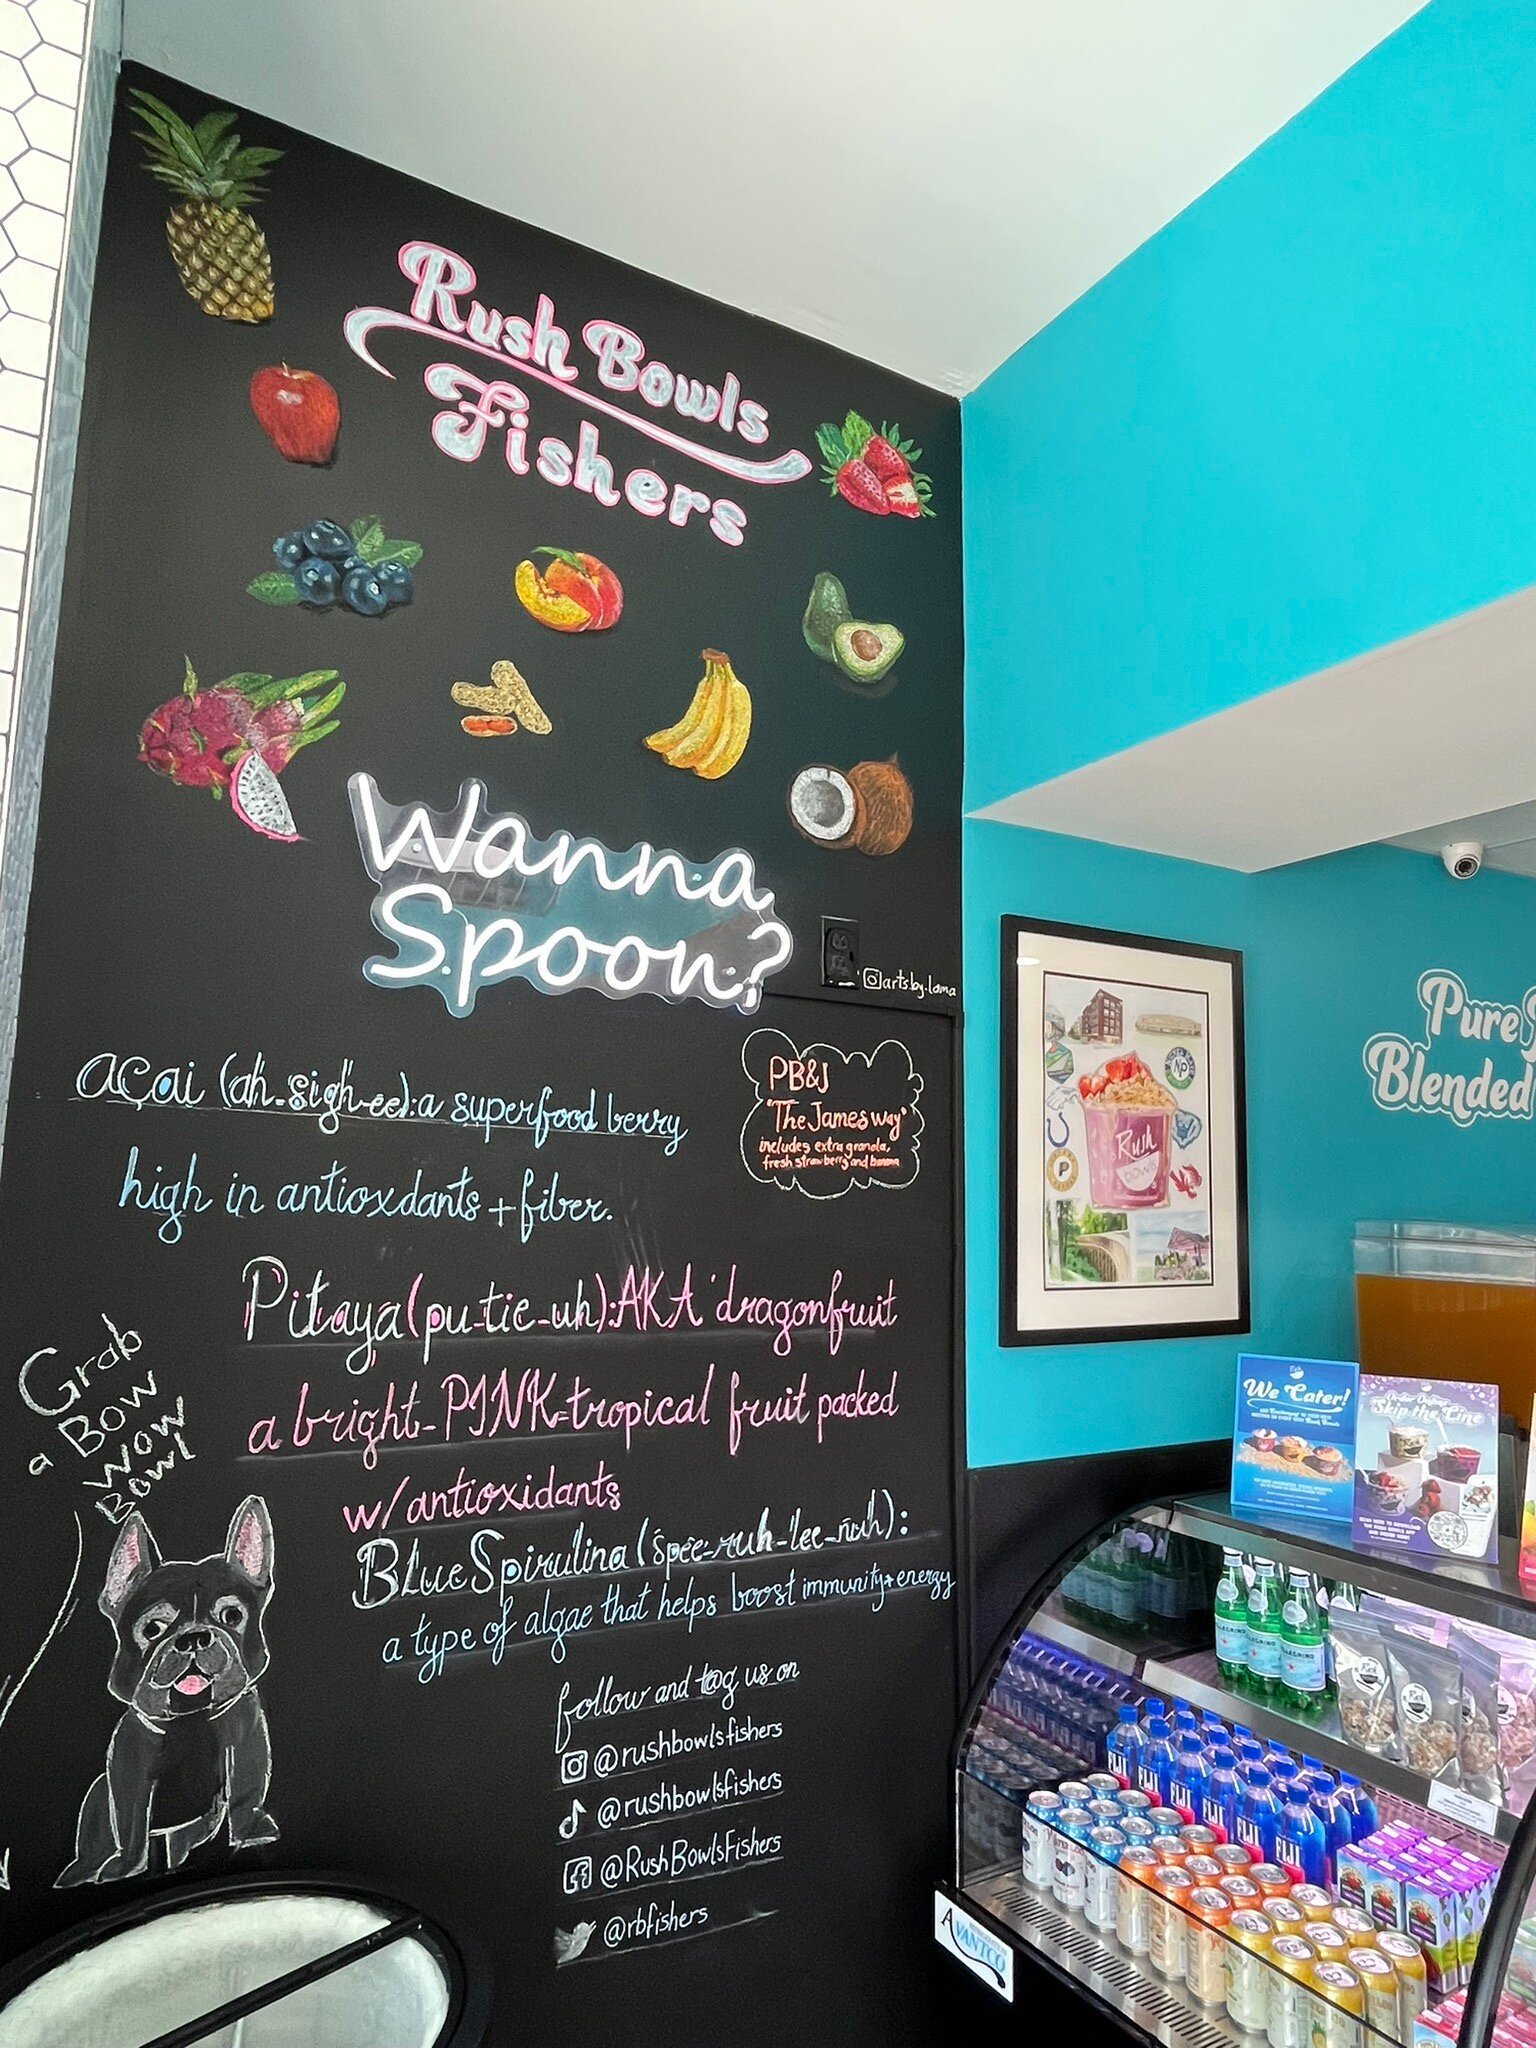 Rush Bowls
Fishers
Wanna
Spoon?
artsby.loma
açai (ah-sigh-ee): a superfood berry
high in antioxdants + fiber.
PB&J
"The James way"
includes extra granola,
fresh strawberry and banana
Pitaya (pu-tie-uh): AKA dragonfruit
a bright-PINK-tropical fruit packed
w/antioxidants
Blue Spirulina (spee-ruh-lee-nuh):
a type of algae that helps boost immunity + energy
Grab
a BOW
WOW
Bowl
follow and tag us on
@rushbowlsfishers
@rushbowlsfishers
@RushBowlsFishers
@rbfishers
NP
P
Rush
BOWLS
Pure
Blended
We Cater!
Order Online
Skip the Line
FIJI
FIJI
FIJI
FIJI
AVANTCO